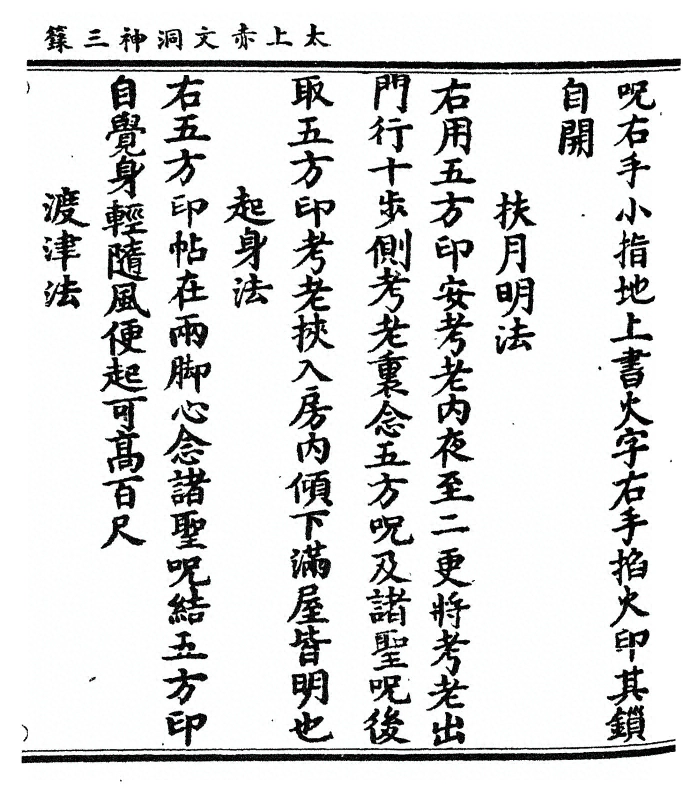 太上赤文洞神三籙
呪右手小指地上書火字右手掐火印其鎖
自開
扶月明法
右用五方印安考老内夜至二更將考老出
門行十步側考老裏念五方呪及諸聖呪後
取五方印考老挾入房内傾下滿屋皆明也
起身法
右五方印帖在兩脚心念諸聖呪結五方印
自覺身輕隨風便起可高百尺
渡津法